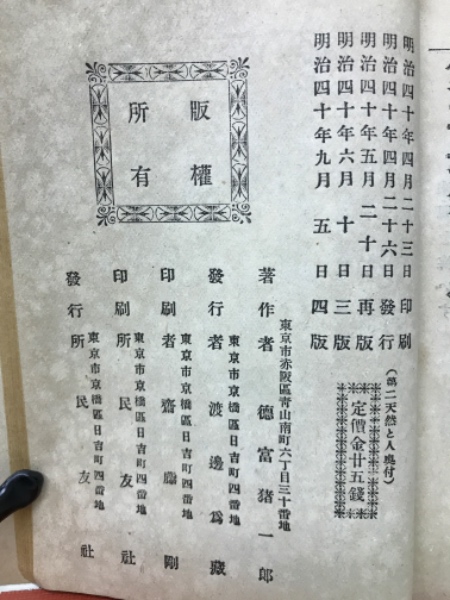 明治四十年四月二十三日印刷
明治四十年四月二十六日發行
明治四十年五月二十日再版
明治四十年六月十日三版
明治四十年九月五日四版
(第二天然と人奥付)
定價金廿五錢
版權
所有
東京市赤阪區青山南町六丁目三十番地
著作者 德富猪一郎
東京市京橋區日吉町四番地
發行者 渡邊爲藏
東京市京橋區日吉町四番地
印刷者 齋藤剛
東京市京橋區日吉町四番地
印刷所 民友社
東京市京橋區日吉町四番地
發行所 民友社